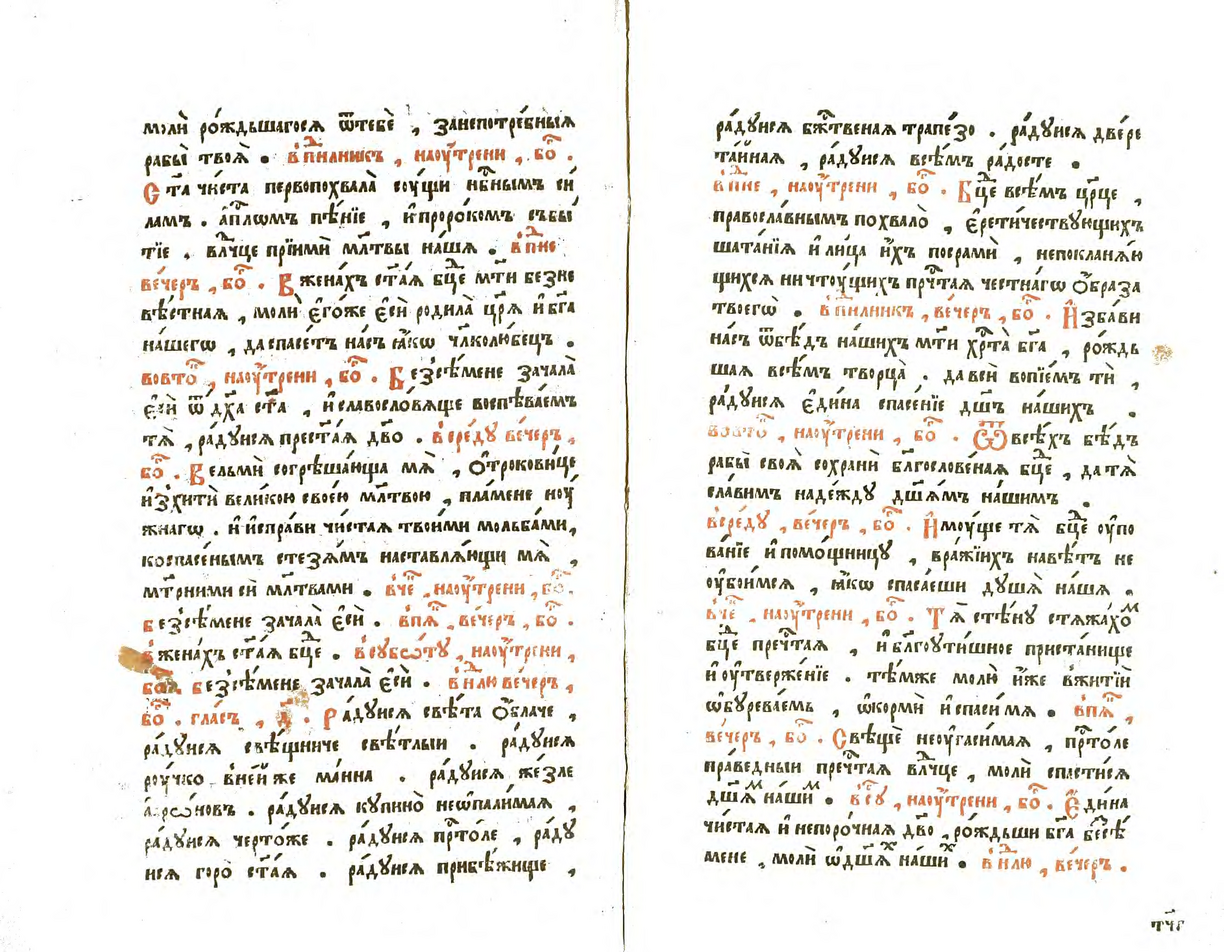 молѝ ро́ждьшагосѧ ѿтебѐ , занепотре́бныѧ
рабы̀ твоѧ̀ . вп҃нлникъ , наоу҆́трени , бо҃ .
Ст҃а чи́ста первопохвала̀ соу́щи нб҃нымъ си́
ламъ . а҆пл҃ѡмъ пѣ́нїе , и҆проро́комъ събы́
тїе , влⷣчце прїимѝ мл҃твы на́шѧ . впⷩ҇ие
ве́черъ , бо҃ . Вжена́хъ ст҃а́ѧ бцⷣе мт҃и безне
вѣ́стнаѧ , молѝ є҆го́же є҆сѝ родила̀ цр҃ѧ̀ и҆ бг҃а
на́шегѡ , даспасе́тъ на́съ ꙗ҆́кѡ чл҃колю́бецъ .
вовто҃ , наоу҆́трени , бо҃ . Безсѣ́мене зачала̀
є҆сѝ ѿ дх҃а ст҃а , и҆славосло́вѧще воспѣва́емъ
тѧ̀ , ра́дуисѧ прест҃а́ѧ дв҃о . всре́ду ве́черъ ,
бо҃ . Вельмѝ согрѣша́юща мѧ̀ , ѻ҆трокови́це
и҆зхитѝ вели́кою свое́ю мл҃твою , пла́мене ноу́
жнагѡ . и҆ и҆спра́ви чи́стаѧ твои́ми мольба́ми,
коспасе́нымъ стезѧ́мъ наставлѧ́ющи мѧ̀ ,
мт҃рними сѝ мл҃твами . вче҃ , наоу҆́трени , бо҃ .
Безсѣ́мене зачала̀ є҆сѝ . впѧ҃ , ве́черъ , бо҃ .
Вжена́хъ ст҃а́ѧ бцⷣе . всубѡ́ту , наоу҆́трени ,
бо҃ . Безсѣ́мене зачала̀ є҆сѝ . внⷣлю ве́черъ ,
бо҃ . гла́съ , д҃ . Ра́дуисѧ свѣ́та ѻ҆́блаче ,
ра́дуисѧ свѣ́щниче свѣ́тлыи . ра́дуисѧ
роу́чко вне́йже ма́нна . ра́дуисѧ же́зле
а҆арѡ́новъ . ра́дуисѧ купино̀ неѡ҆пали́маѧ ,
ра́дуисѧ черто́же . ра́дуисѧ прⷭ҇то́ле , ра́ду
исѧ горо̀ ст҃а́ѧ . ра́дуисѧ прибѣ́жище ,
ра́дуисѧ бжⷭ҇твенаѧ трапе́зо . ра́дуисѧ две́ре
та́йнаѧ , ра́дуисѧ всѣ́мъ ра́досте .
впⷩ҇ие , наоу҆́трени , бо҃ . Бцⷣе всѣ́мъ цр҃це ,
правосла́внымъ похвало̀ , є҆рети́чествующихъ
шата́нїѧ и҆ лица̀ и҆́хъ посрамѝ , непоклонѧ́ю
щихсѧ ничтоу́щихъ преч҃таѧ честна́гѡ ѻ҆́браза
твоегѡ̀ . вп҃нлникъ , ве́черъ , бо҃ . И҆зба́ви
на́съ ѿбѣ́дъ на́шихъ мт҃и хрⷭ҇та̀ бг҃а , ро́ждь
шаѧ всѣ́мъ творца̀ . давсѝ вопїе́мъ тѝ ,
ра́дуисѧ є҆ди́на спасе́нїе дш҃ъ на́шихъ .
вовто҃ , наоу҆́трени , бо҃ . Ѿвсѣ́хъ бѣ́дъ
рабы̀ своѧ̀ сохранѝ бл҃гослове́наѧ бцⷣе , да тѧ̀
сла́вимъ наде́жду дш҃ѧ́мъ на́шимъ .
всре́ду , ве́черъ , бо҃ . И҆му́ще тѧ̀ бцⷣе оу҆пова́
ва́нїе и҆ помо́щницу , вра́жїихъ навѣ́тъ не
оу҆бои́мсѧ , ꙗ҆́кѡ спаса́еши ду́шѧ на́шѧ .
вче҃ , наоу҆́трени , бо҃ . Тѧ̀ стѣ́ну стѧжа́хоⷨ
бцⷣе преч҃таѧ , и҆ бл҃гоути́шное приста́нище
и҆ оу҆твержде́нїе . тѣ́мже молю̀ и҆́же вжитїѝ
ѡ҆бурева́емь , ѡ҆кормѝ и҆ спаси́ мѧ . впѧ҃ ,
ве́черъ , бо҃ . Свѣщѐ неоугаси́маѧ , прⷭ҇то́ле
пра́ведныи преч҃таѧ влⷣчце , молѝ спⷭ҇тисѧ
дш҃ѧⷨ на́шиⷨ . всⷹ , наоу҆́трени , бо҃ . Є҆ди́на
чи́стаѧ и҆ непоро́чнаѧ дв҃о , ро́ждьши бг҃а бесѣ́
мене , молѝ ѡ҆дш҃ѧⷯ на́шиⷯ . внⷣлю , ве́черъ .
тч҃г